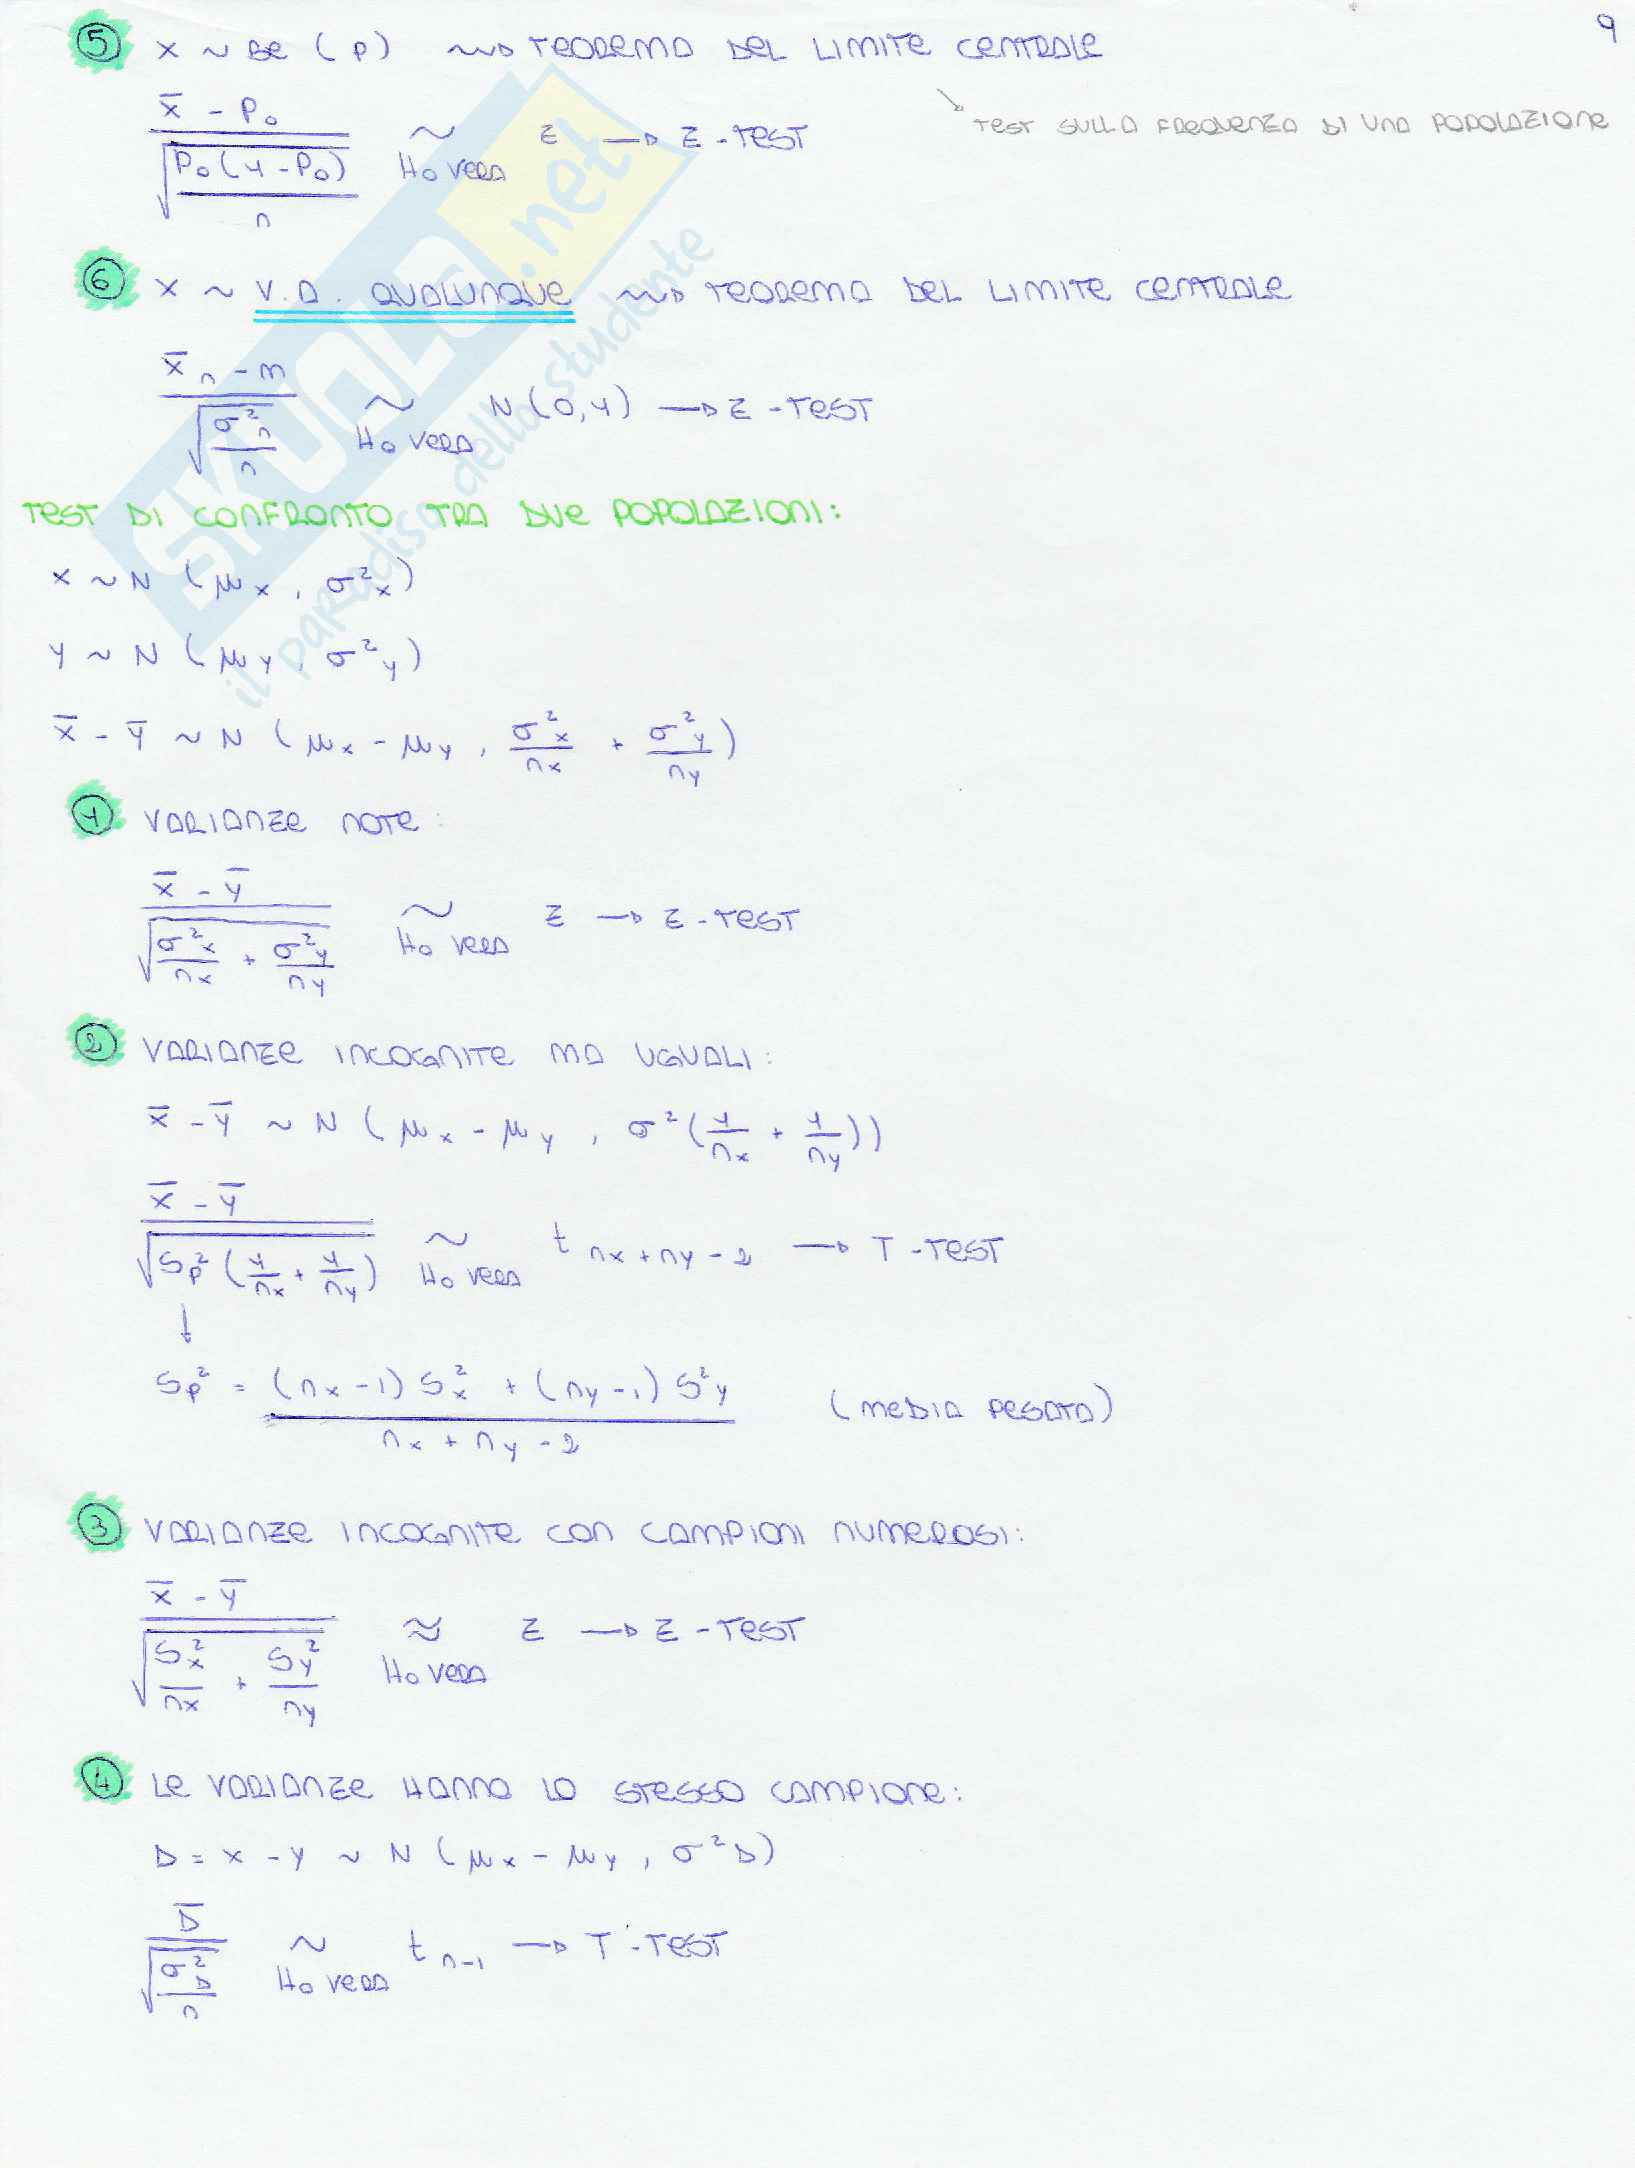 9
⑤ X ~ Be (p) ⇝ TEOREMA DEL LIMITE CENTRALE
↘ TEST SULLA FREQUENZA DI UNA POPOLAZIONE
(X̄ - p₀) / √(p₀(1-p₀)/n) ~ H₀ VERA Z → Z-TEST
⑥ X ~ V.A. QUALUNQUE ⇝ TEOREMA DEL LIMITE CENTRALE
(X̄ₙ - m) / √(σ²ₙ/n) ~ H₀ VERA N(0,1) → Z-TEST
TEST DI CONFRONTO TRA DUE POPOLAZIONI:
X ~ N (μx, σ²x)
Y ~ N (μy, σ²y)
X̄ - Ȳ ~ N (μx - μy, σ²x/nx + σ²y/ny)
① VARIANZE NOTE:
(X̄ - Ȳ) / √(σ²x/nx + σ²y/ny) ~ H₀ VERA Z → Z-TEST
② VARIANZE INCOGNITE MA UGUALI:
X̄ - Ȳ ~ N (μx - μy, σ²(1/nx + 1/ny))
(X̄ - Ȳ) / √(Sp²(1/nx + 1/ny)) ~ H₀ VERA t nx+ny-2 → T-TEST
↓
Sp² = ((nx-1) S²x + (ny-1) S²y) / (nx + ny - 2) (MEDIA PESATA)
③ VARIANZE INCOGNITE CON CAMPIONI NUMEROSI:
(X̄ - Ȳ) / √(Sx²/nx + Sy²/ny) ≈ H₀ VERA Z → Z-TEST
④ LE VARIANZE HANNO LO STESSO CAMPIONE:
D = X - Y ~ N (μx - μy, σ²D)
D̄ / √(σ²D/n) ~ H₀ VERA t n-1 → T-TEST
SKUOLA.net
il paradiso dello studente